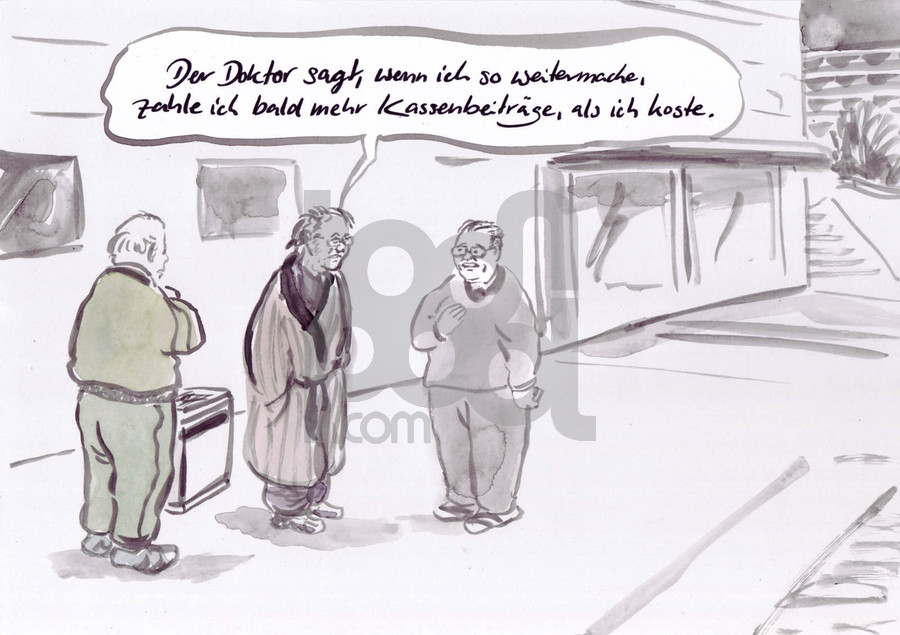 Der Doktor sagt, wenn ich so weitermache,
zahle ich bald mehr Kassenbeiträge, als ich koste.
toonpool
.com